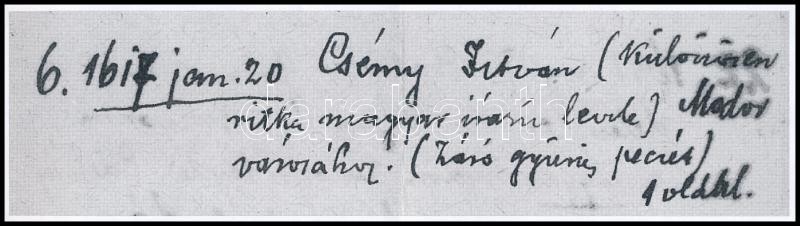 6. 1617 jan. 20 Csémy István (Különösen
ritka magyar írású levele) Modor
városához. (Záró gyűrűs pecsét)
1 oldal.
darabanth